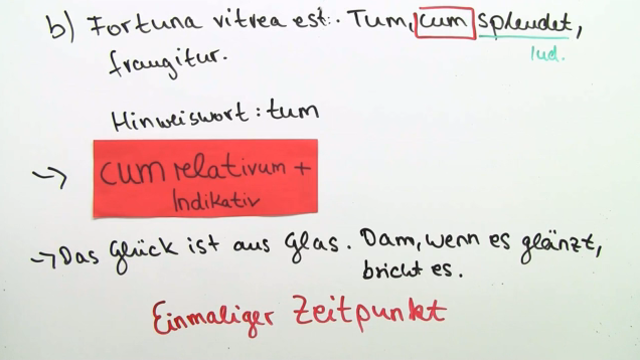 b) Fortuna vitrea est. Tum, cum splendet,
Ind.
frangitur.
Hinweiswort: tum
cum relativum +
Indikativ
Das Glück ist aus Glas. Dann, wenn es glänzt,
bricht es.
Einmaliger Zeitpunkt